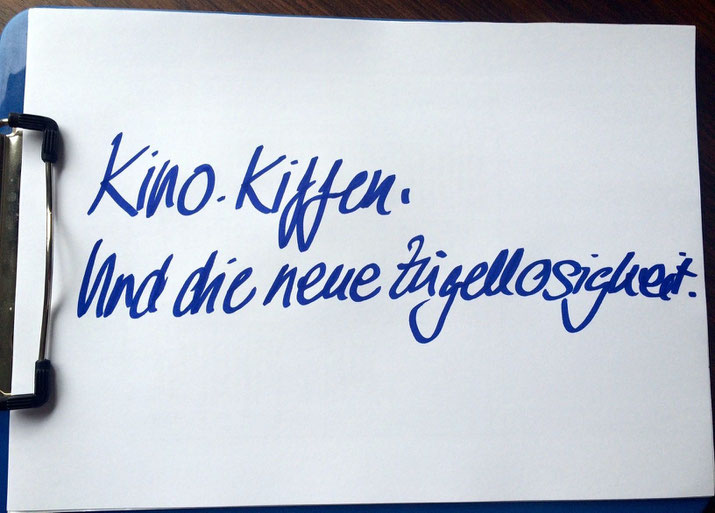 Kino. Kiffen.
Und die neue Zügellosigkeit.